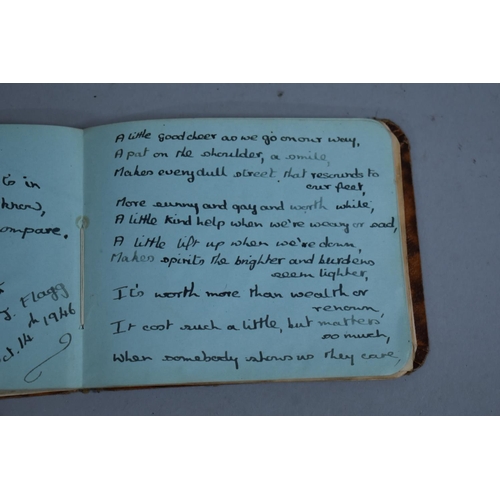 is in
know,
compare.
J. Flagg
Oct. 14 th 1946
A little good cheer as we go on our way,
A pat on the shoulder, a smile,
Makes every dull street, that resounds to
our feet,
More sunny and gay and worth while,
A little kind help when we're weary or sad,
A little lift up when we're down,
Makes spirits the brighter and burdens
seem lighter,
It's worth more than wealth or
renown,
It cost such a little, but matters
so much,
When somebody shows us they care,